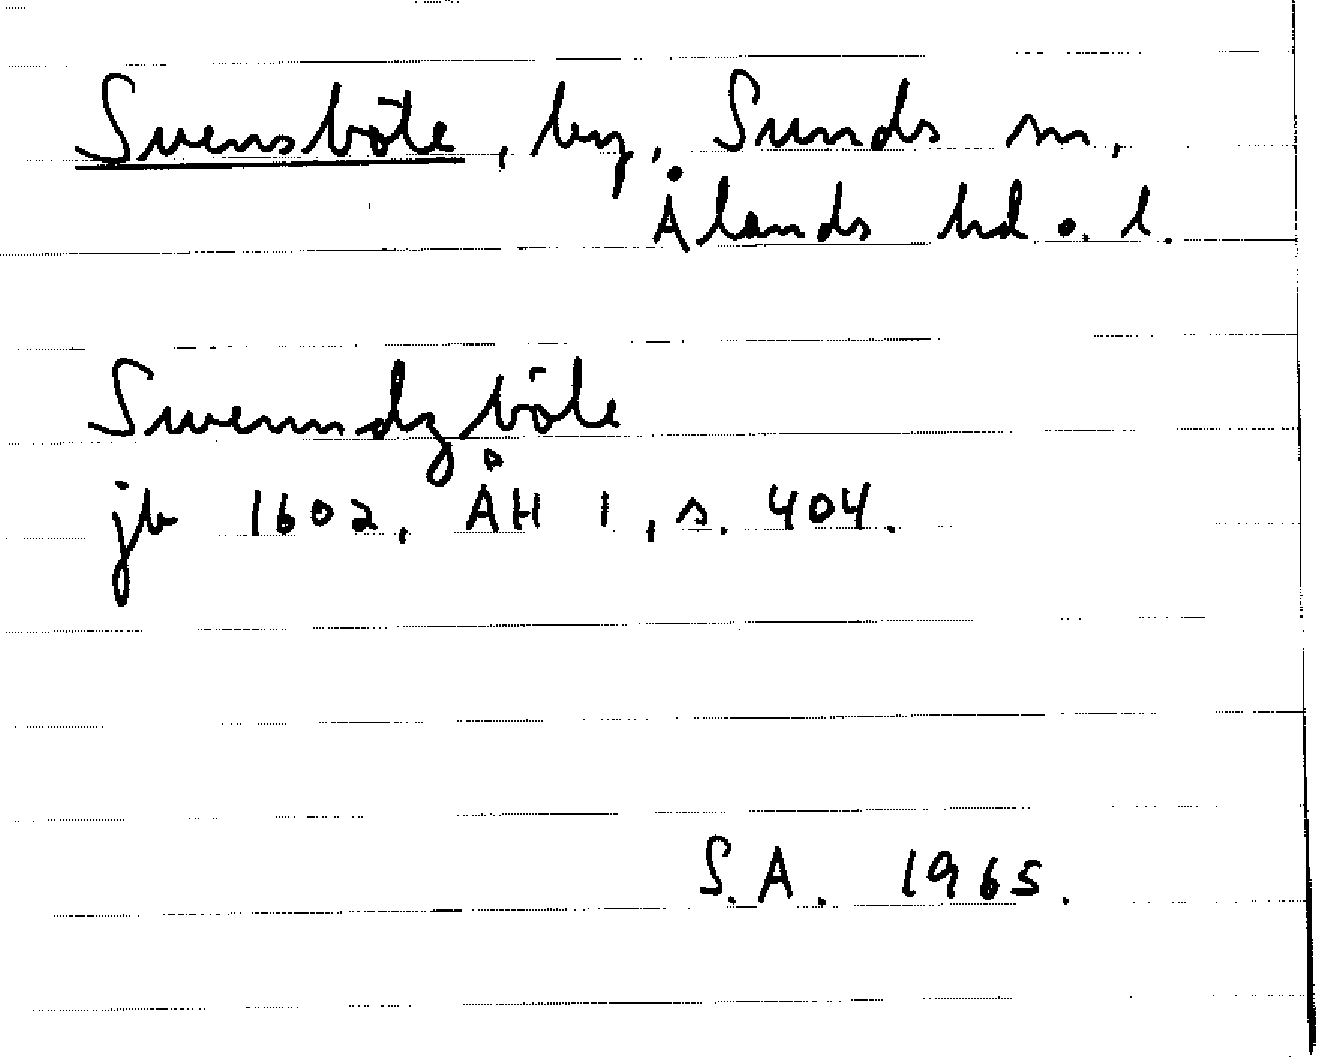 Svensböle, by, Sunds sn,
Ålands hd o. l.
Swenndzböle
jb 1602, ÅH 1, s. 404.
S.A. 1965.